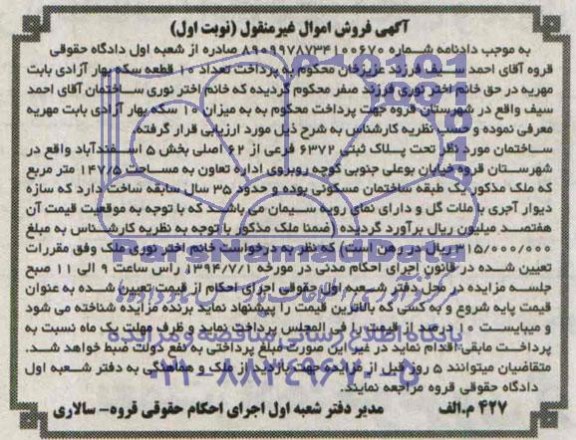 آگهی فروش اموال غیرمنقول (نوبت اول)
به موجب دادنامه شماره ۸۹۰۹۹۷۸۷۳۴۱۰۰۶۷۰ صادره از شعبه اول دادگاه حقوقی
قروه آقای احمد سیف فرزند عزیزخان محکوم به پرداخت تعداد ۱۰ قطعه سکه بهار آزادی بابت
مهریه در حق خانم اختر نوری فرزند صفر محکوم گردیده که خانم اختر نوری ساختمان آقای احمد
سیف واقع در شهرستان قروه جهت پرداخت محکوم به به میزان ۱۰ سکه بهار آزادی بابت مهریه
معرفی نموده و حسب نظریه کارشناس به شرح ذیل مورد ارزیابی قرار گرفته
ساختمان مورد نظر تحت پلاک ثبتی ۶۳۷۲ فرعی از ۶۲ اصلی بخش ۵ اسفندآباد واقع در
شهرستان قروه خیابان بوعلی جنوبی کوچه روبروی اداره تعاون به مساحت ۱۴۷/۵ متر مربع
که ملک مذکور یک طبقه ساختمان مسکونی بوده و حدود ۳۵ سال سابقه ساخت دارد که سازه
دیوار آجری با ملات گل و دارای نمای رویه سیمان می باشد که با توجه به موقعیت قیمت آن
هفتصد میلیون ریال برآورد گردیده (ضمنا ملک مذکور با توجه به نظریه کارشناس به مبلغ
۳۱۵/۰۰۰/۰۰۰ ریال در رهن است) که نظر به درخواست خانم اختر نوری ملک وفق مقررات
تعیین شده در قانون اجرای احکام مدنی در مورخه ۱۳۹۴/۷/۱ راس ساعت ۹ الی ۱۱ صبح
جلسه مزایده در محل دفتر شعبه اول حقوقی اجرای احکام از قیمت تعیین شده به عنوان
قیمت پایه شروع و به کسی که بالاترین قیمت را پیشنهاد نماید برنده مزایده شناخته می شود
و میبایست ۱۰ درصد از قیمت را فی المجلس پرداخت نماید و ظرف مهلت یک ماه نسبت به
پرداخت مابقی اقدام نماید در غیر این صورت مبلغ پرداختی به نفع دولت ضبط خواهد شد.
متقاضیان میتوانند ۵ روز قبل از مزایده جهت بازدید از ملک و هماهنگی به دفتر شعبه اول
دادگاه حقوقی قروه مراجعه نمایند.
۴۲۷ م.الف
مدیر دفتر شعبه اول اجرای احکام حقوقی قروه- سالاری
ParsNamadData
پایگاه اطلاع رسانی مناقصه و مزایده